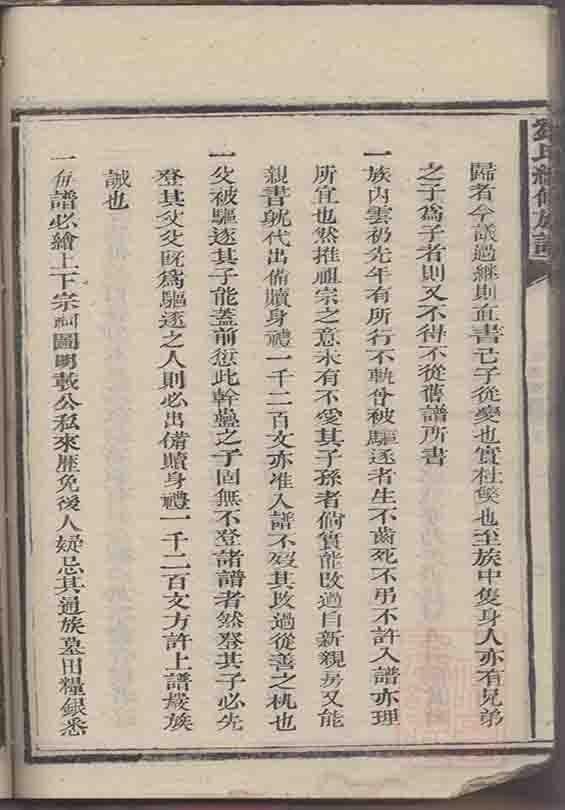 歸者今議過繼則直書己子從變也實杜釁也至族中隻身人亦有兄弟
之子爲子者則又不得不從舊譜所書
一族內雲礽先年有所行不軌曾被驅逐者生不齒死不弔不許入譜亦理
所宜也然推祖宗之意未有不愛其子孫者倘實能改過自新親房又能
親書就代出備贖身禮一千二百文亦准入譜不沒其改過從善之機也
一父被驅逐其子能蓋前愆此幹蠱之子固無不登諸譜者然登其子必先
登其父父旣爲驅逐之人則必出備贖身禮一千二百文方許上譜嚴族
誡也
一修譜必繪上下宗祠圖明載公私來歷免後人疑忌其通族墓田糧銀悉
氏續修族譜